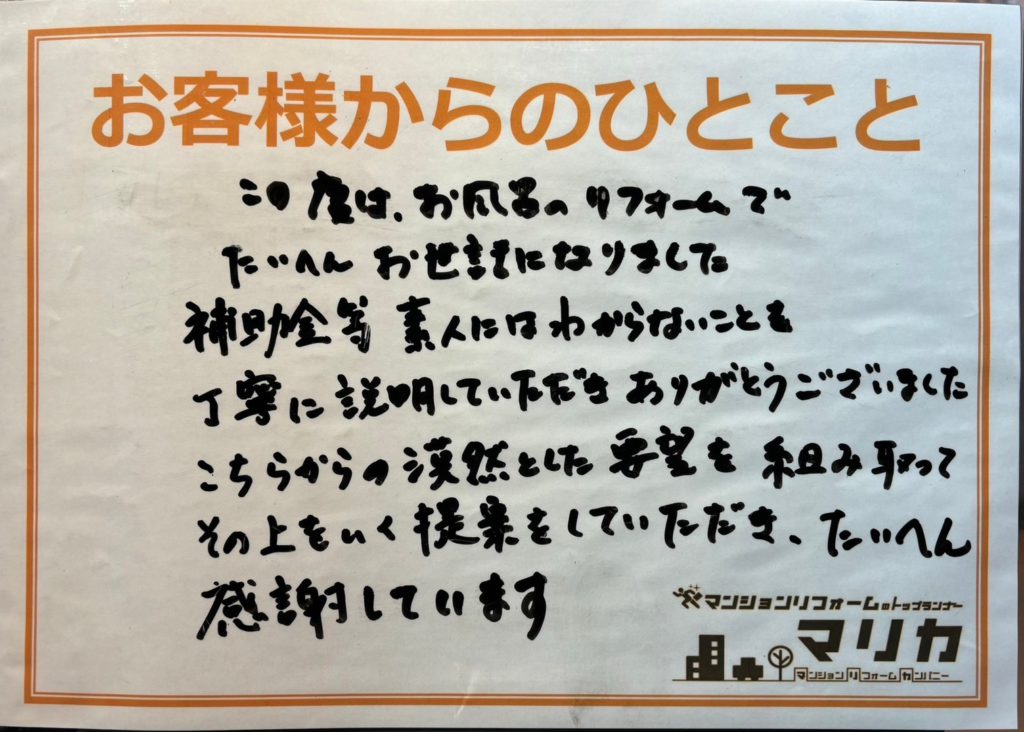 お客様からのひとこと
この度は、お風呂のリフォームで
たいへんお世話になりました
補助金等 素人にはわからないことも
丁寧に説明していただきありがとうございました
こちらからの漠然とした要望を組み取って
その上をいく提案をしていただき、たいへん
感謝しています
マンションリフォームのトップランナー
マリカ
マンションリフォームカンパニー